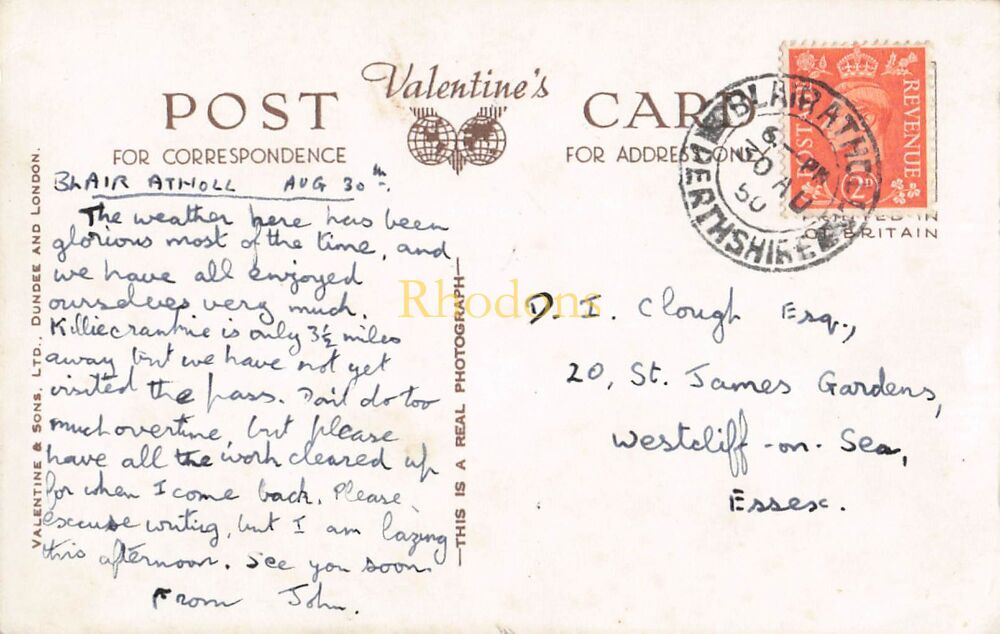 Valentine's
POST CARD
FOR CORRESPONDENCE
FOR ADDRESS ONLY
BLAIR ATHOLL AUG 30th.
The weather here has been
glorious most of the time, and
we have all enjoyed
ourselves very much.
Killiecrankie is only 3½ miles
away but we have not yet
visited the pass. Don't do too
much overtime, but please
have all the work cleared up
for when I come back. Please
excuse writing, but I am lazing
this afternoon. See you soon.
From John.
VALENTINE & SONS, LTD., DUNDEE AND LONDON.
—THIS IS A REAL PHOTOGRAPH—
Rhodons
D. I. Clough Esq.,
20, St. James Gardens,
Westcliff-on-Sea,
Essex.
BLAIR ATHOLL
30 AU
50
PERTHSHIRE
POSTAGE
REVENUE
2D
PRINTED IN
BRITAIN